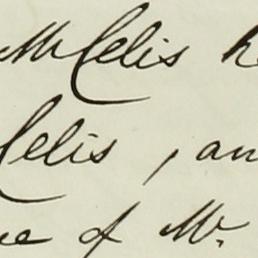 M Celis h
Celis, an
ue of Mr.